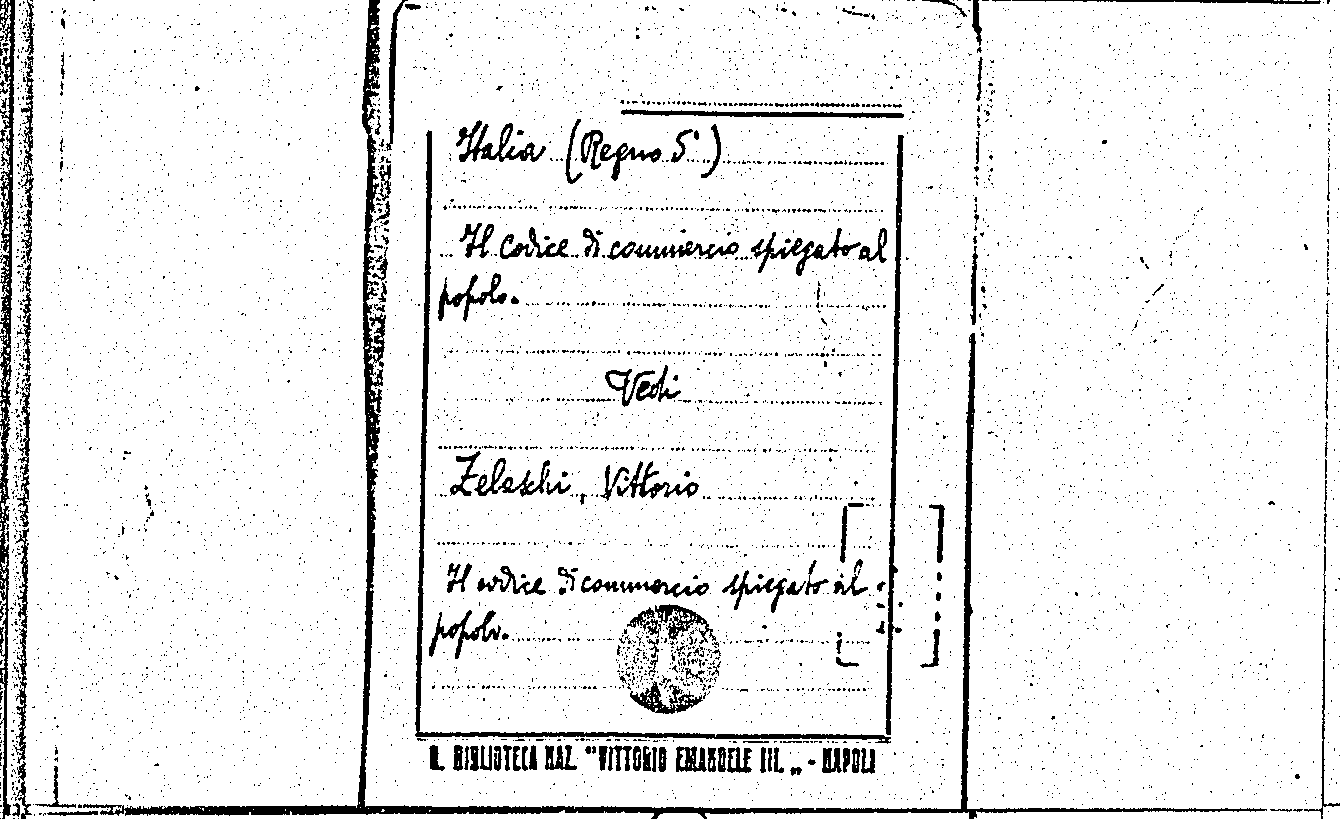 Italia (Regno 5°)
Il Codice di commercio spiegato al
popolo.
Vedi
Zeleschi, Vittorio
Il codice di commercio spiegato al
popolo.
R. BIBLIOTECA NAZ. "VITTORIO EMANUELE III. „ - NAPOLI